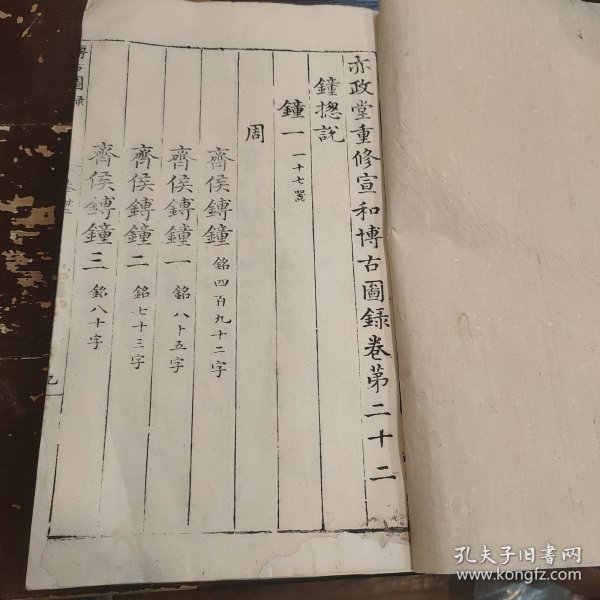 亦政堂重修宣和博古圖録卷第二十二
鐘摠說
鐘一 一十七器
周
齊侯鎛鐘 銘四百九十二字
齊侯鎛鐘一 銘八十五字
齊侯鎛鐘二 銘七十三字
齊侯鎛鐘三 銘八十字
博古圖録
孔夫子旧书网
www.kongfz.com